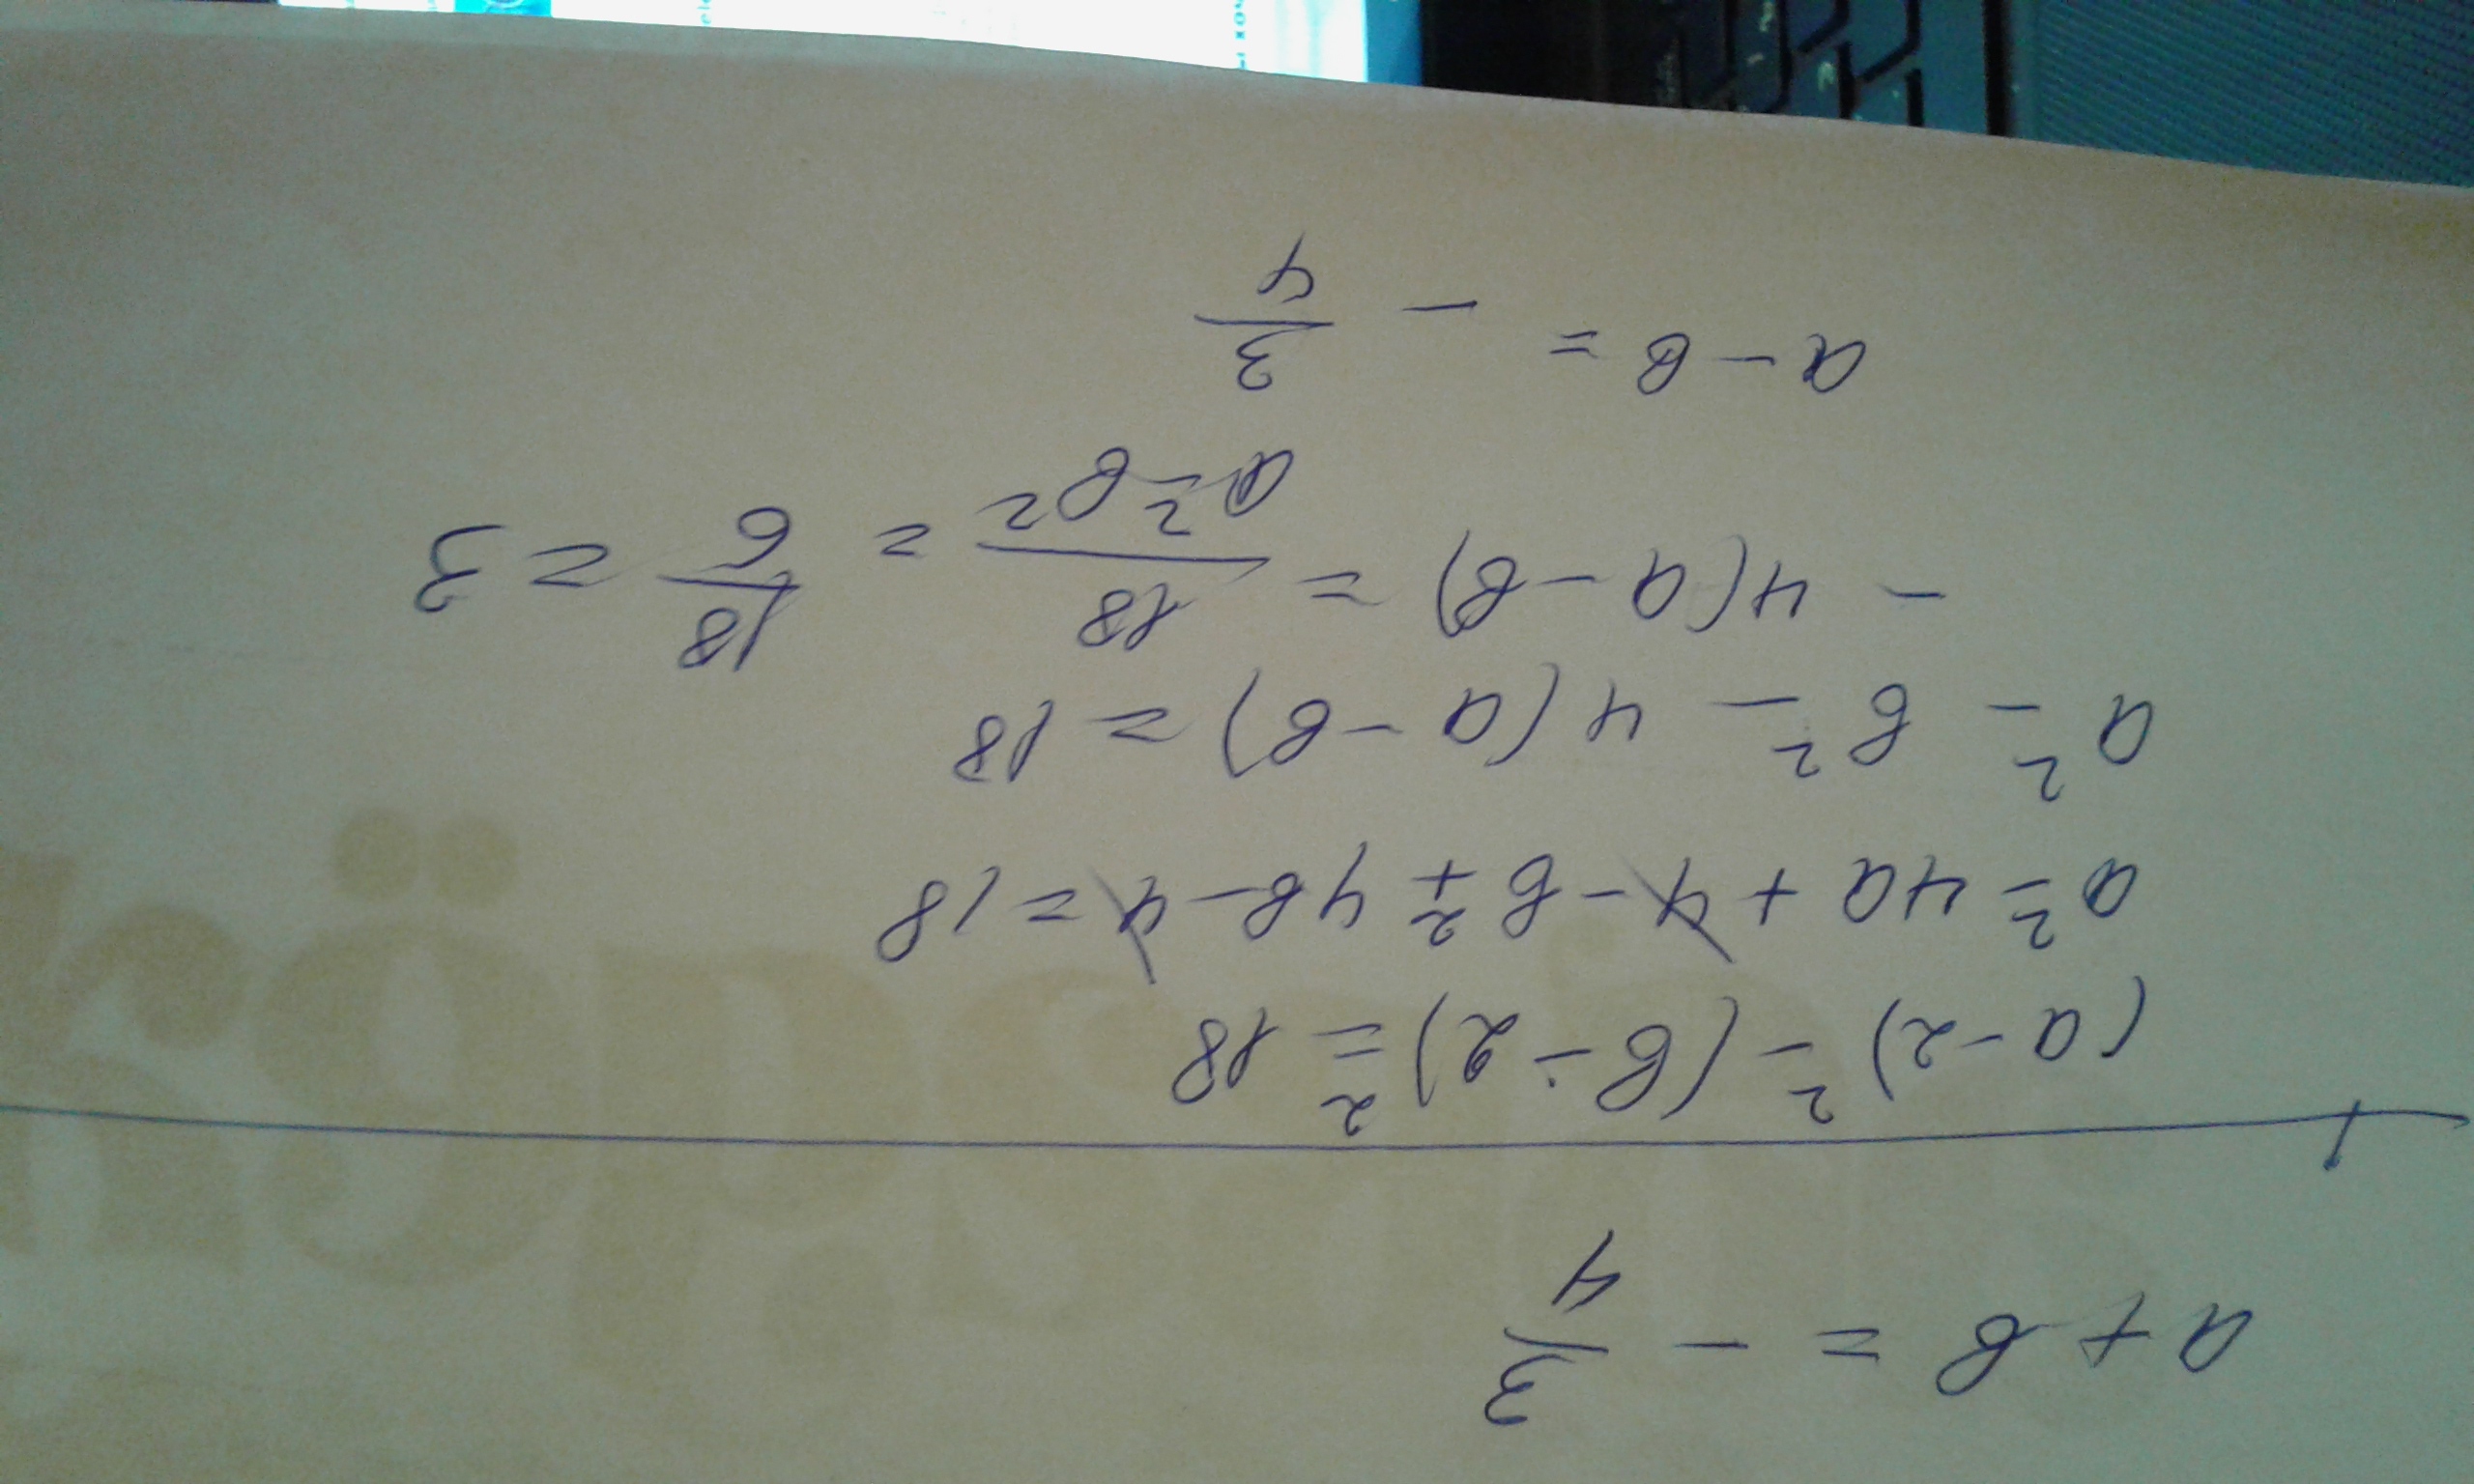 a + в = - 3/4
(a-2)² - (в-2)² = 18
a² - 4a + 4 - в² + 4в - 4 = 18
a² - в² - 4(a-в) = 18
- 4(a-в) = 18/a²-в² = 18/6 = 3
a - в = - 3/4